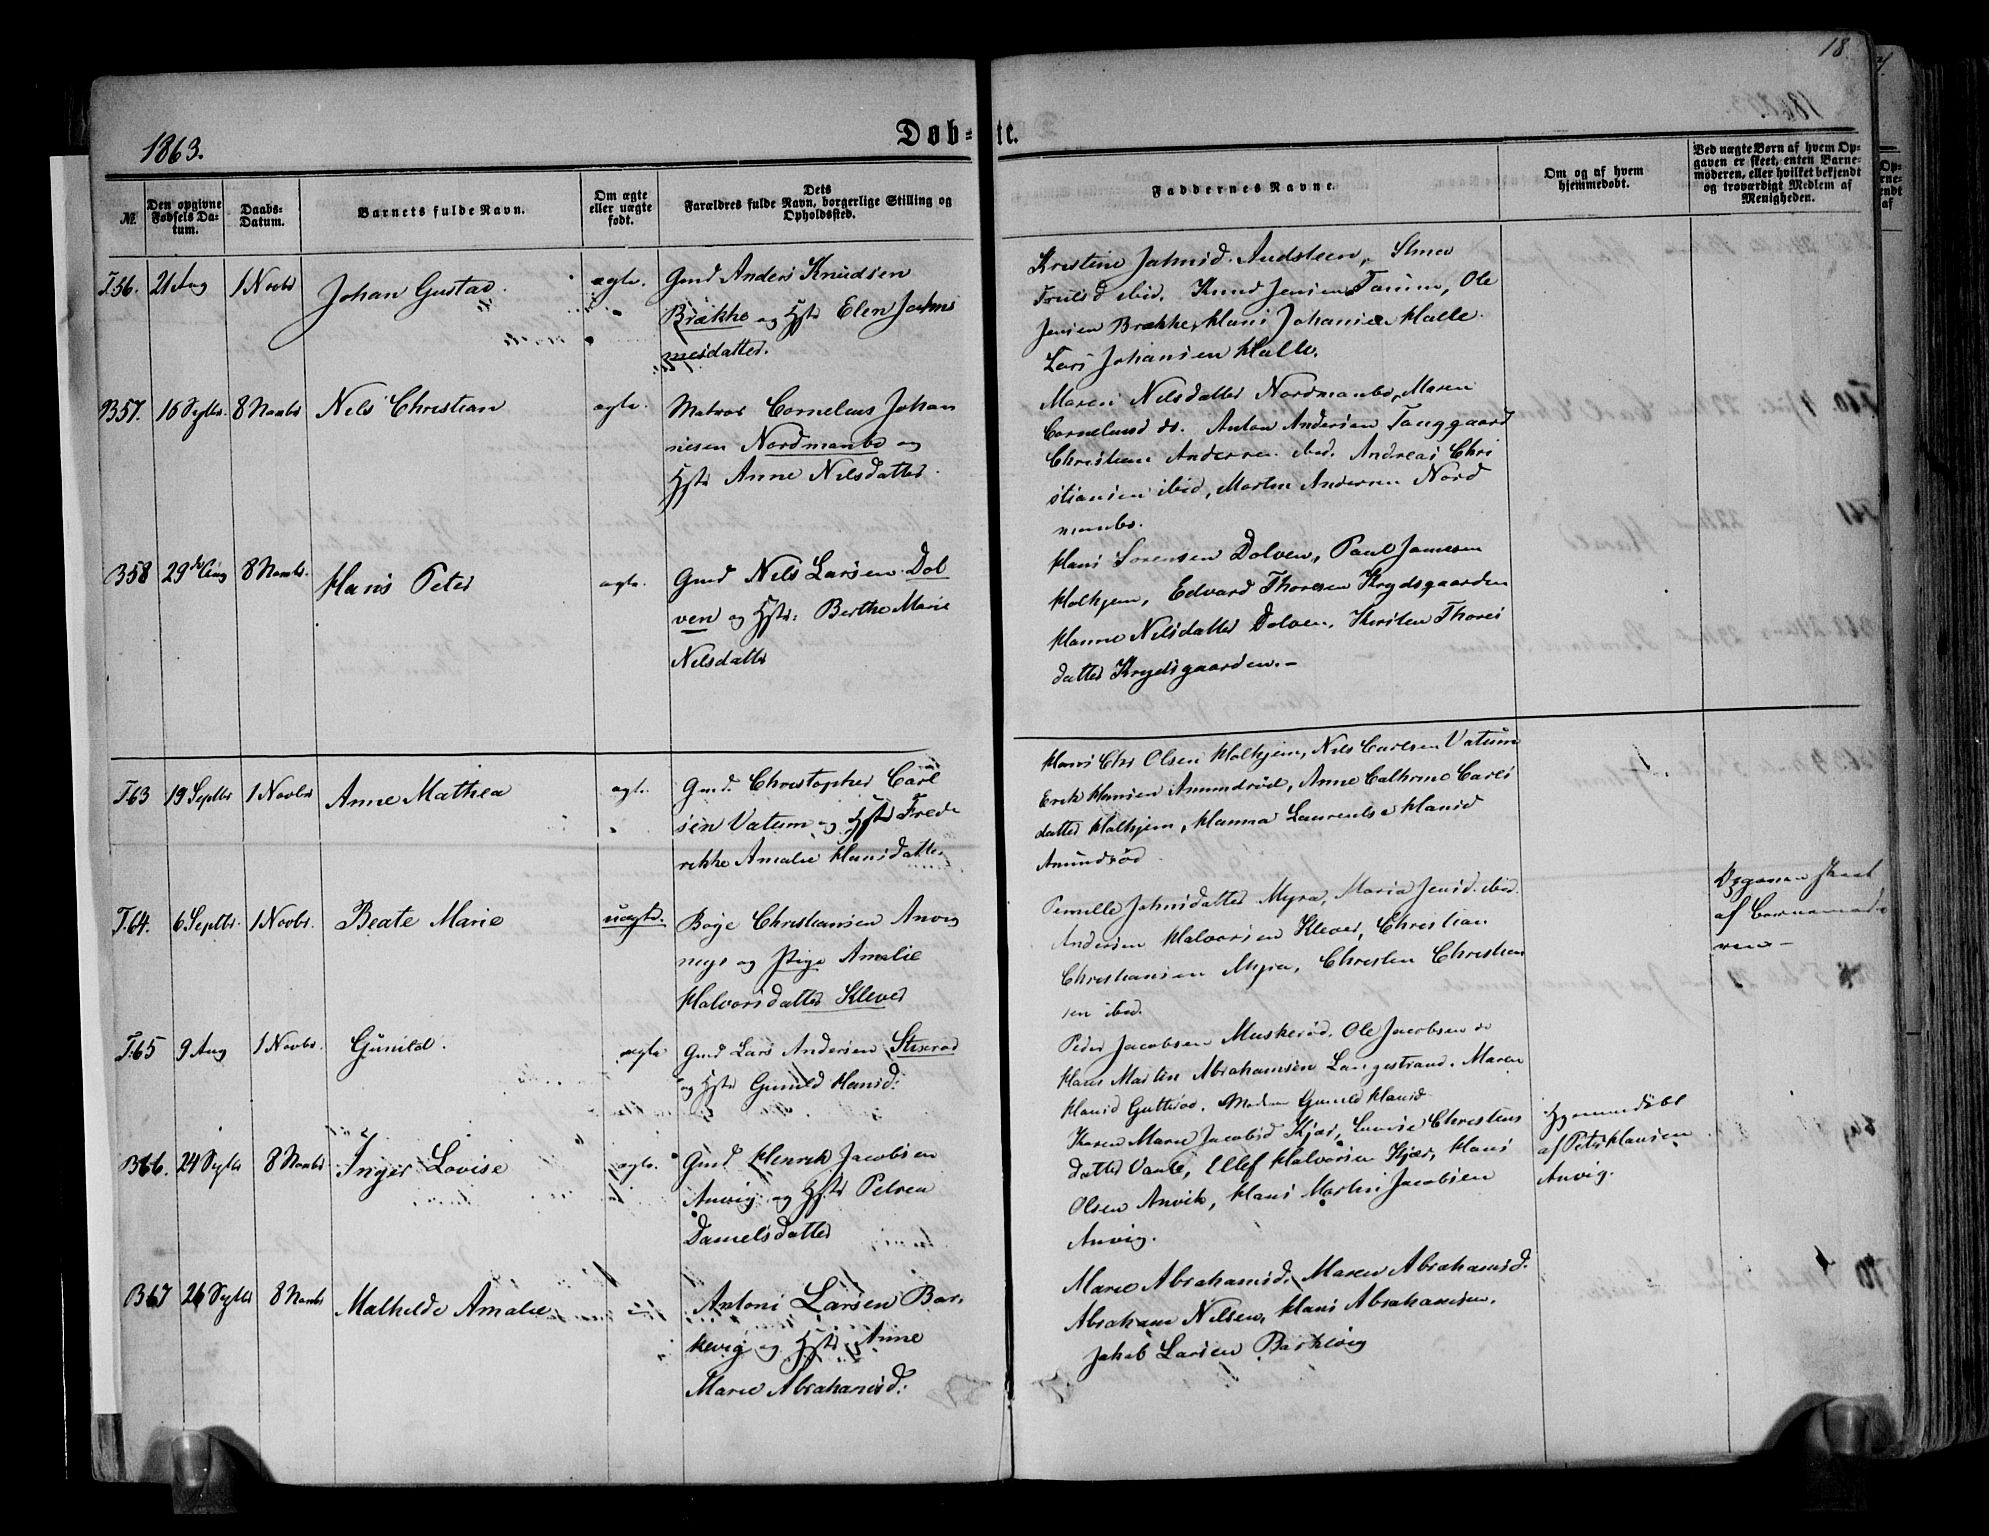 18.
1863.
Døb-te.
№
Den opgivne Fødsels Da-tum.
Daabs-Datum.
Barnets fulde Navn.
Om ægte eller uægte født.
Dets Forældres fulde Navn, borgerlige Stilling og Opholdssted.
Faddernes Navne.
Om og af hvem hjemmedøbt.
Ved uægte Børn af hvem Op-gaven er skeet, enten Barne-moderen, eller hvilket bekjendt og troværdigt Medlem af Menigheden.
T.56. 21 Aug 1 Novbr Johan Gustav. ægte.
Gmd Anders Knudsen
Brække og Hstr Elen Johan
nesdatter.
Kristine Jahnsd. Andsteen,
ibid. Knud Jensen Farum, Ole
Jensen Brække, Hans Johansen Halle.
Lars Johansen Halle.
B57. 16 Septbr. 8 Novbr Nils Christian ægte.
Matros Cornelius Johan
nesen Nordmanbo og
Hstr Anne Nilsdatter.
Maren Nilsdatter Nordmanbo, Maren
Corneliusd do. Anton Andersen Fonggaard
Christian Andersen ibid. Andreas Chri
stiansen ibid, Martin Andersen Nord
manbo.
B58 29de Aug 8 Novbr. Hans Peter ægte.
Gmd Nils Larsen Dol
ven og Hstr: Berthe Marie
Nilsdatter
Hans Sørensen Dolven, Paul Jamesen
Holhjem, Edvard Thoresen Krydsgaarden
Hanne Nilsdatter Dolven, Kirsten Thores
datter Krydsgaarden.-
T.63 19 Septbr 1 Novbr Anne Mathea ægte.
Gmd. Christopher Carl
sen Vatum og Hstr Frede
rikke Amalie Hansdatter
Hans Chr Olsen Holhjem, Nils Carlsen Vatum
Erik Hansen Amundrød, Anne Cathrine Carls
datter Holhjem, Hanna Laurentse Hansd
Amundrød
T.64. 6 Septbr. 1 Novbr. Beate Marie uægte.
Boye Christiansen Anvig
og Pige Amalie
Halvorsdatter Klever
Pernille Johnsdatter Myra, Maria Jensd. ibid.
Andersen Halvorsen Klever, Christian
Christiansen Myra, Christen Christian
sen ibid.
Opgaven skeet
af Barnemode
ren-
T.65 9 Aug 1 Novbr. Gunild. ægte
Gmd Lars Andersen
og Hstr Gunild Hansd:
Peder Jacobsen Muskerød, Ole Jacobsen do
Hans Martin Abrahamsen Langestrand. Maren
Hansd Gutterød. Madam Gunild Hansd
B66. 24 Septbr 8 Novbr Inger Lovise ægte.
Gmd Henrik Jacobsen
Anvig og Hstr Petrea
Danielsdatter
Karen Marie Jacobsd Kjær, Lovise Christens
datter, Ellef Halvorsen Kjær, Hans
Olsen Anvik, Hans Martin Jacobsen
Anvig.
Hjemmedøbt
af Peter Hansen
Anvig.
B67 26 Septbr 8 Novbr Mathilde Amalie
Antoni Larsen Bar
kevig og Hstr Anne
Marie Abrahamsd:
Marie Abrahamsd, Maren Abrahamsd.
Abraham Nilsen, Hans Abrahamsen,
Jakob Larsen Barkevig